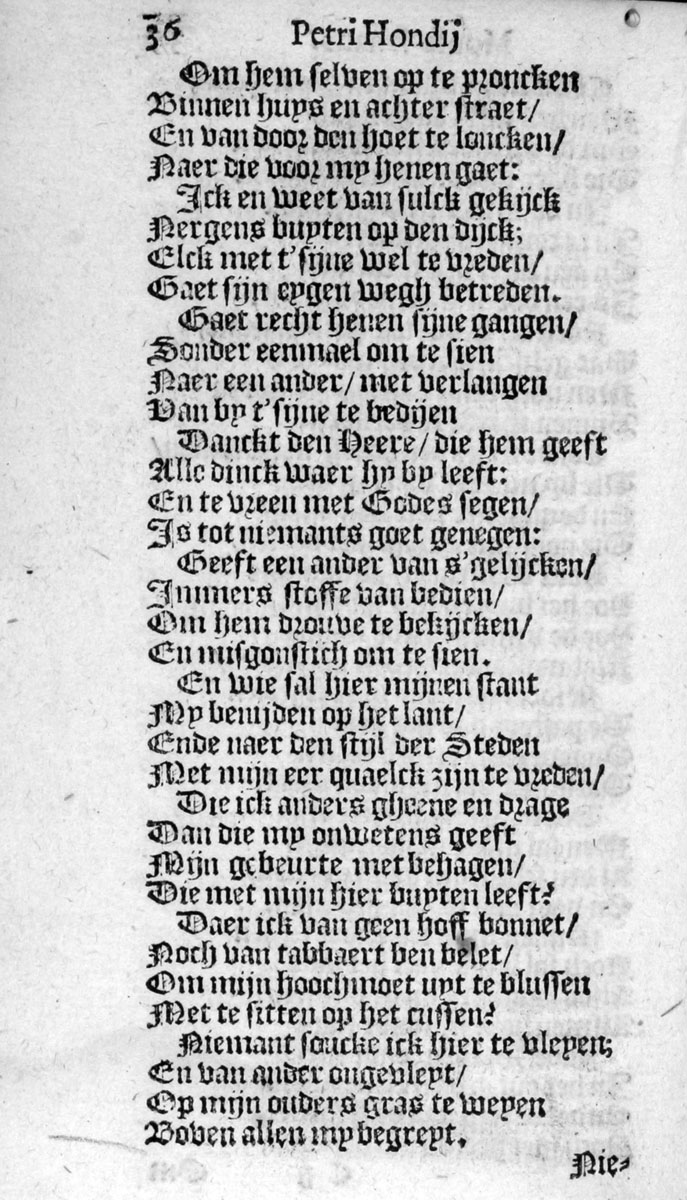 36 Petri Hondij
Om hem selven op te proncken
Binnen huys en achter straet/
En van door den hoet te loncken/
Naer die voor my henen gaet:
Ick en weet van sulck gekijck
Nergens buyten op den dijck;
Elck met t'sijne wel te vreden/
Gaet sijn eygen wegh betreden.
Gaet recht henen sijne gangen/
Sonder eenmael om te sien
Naer een ander/ met verlangen
Van by t'sijne te bedijen
Danckt den Heere/ die hem geeft
Alle dinck waer hy by leeft:
En te vreen met Godes segen/
Is tot niemants goet genegen:
Geeft een ander van s'gelijcken/
Immers stoffe van bedien/
Om hem drouve te bekijcken/
En misgonstich om te sien.
En wie sal hier mijnen stant
My benijden op het lant/
Ende naer den stijl der Steden
Met mijn eer quaelck zijn te vreden/
Die ick anders gheene en drage
Dan die my onwetens geeft
Mijn gebeurte met behagen/
Die met mijn hier buyten leeft?
Daer ick van geen hoff bonnet/
Noch van tabbaert ben belet/
Om mijn hoochmoet uyt te blussen
Met te sitten op het cussen?
Niemant soucke ick hier te vleyen;
En van ander ongevleyt/
Op mijn ouders gras te weyen
Boven allen my begreyt.
Nie-